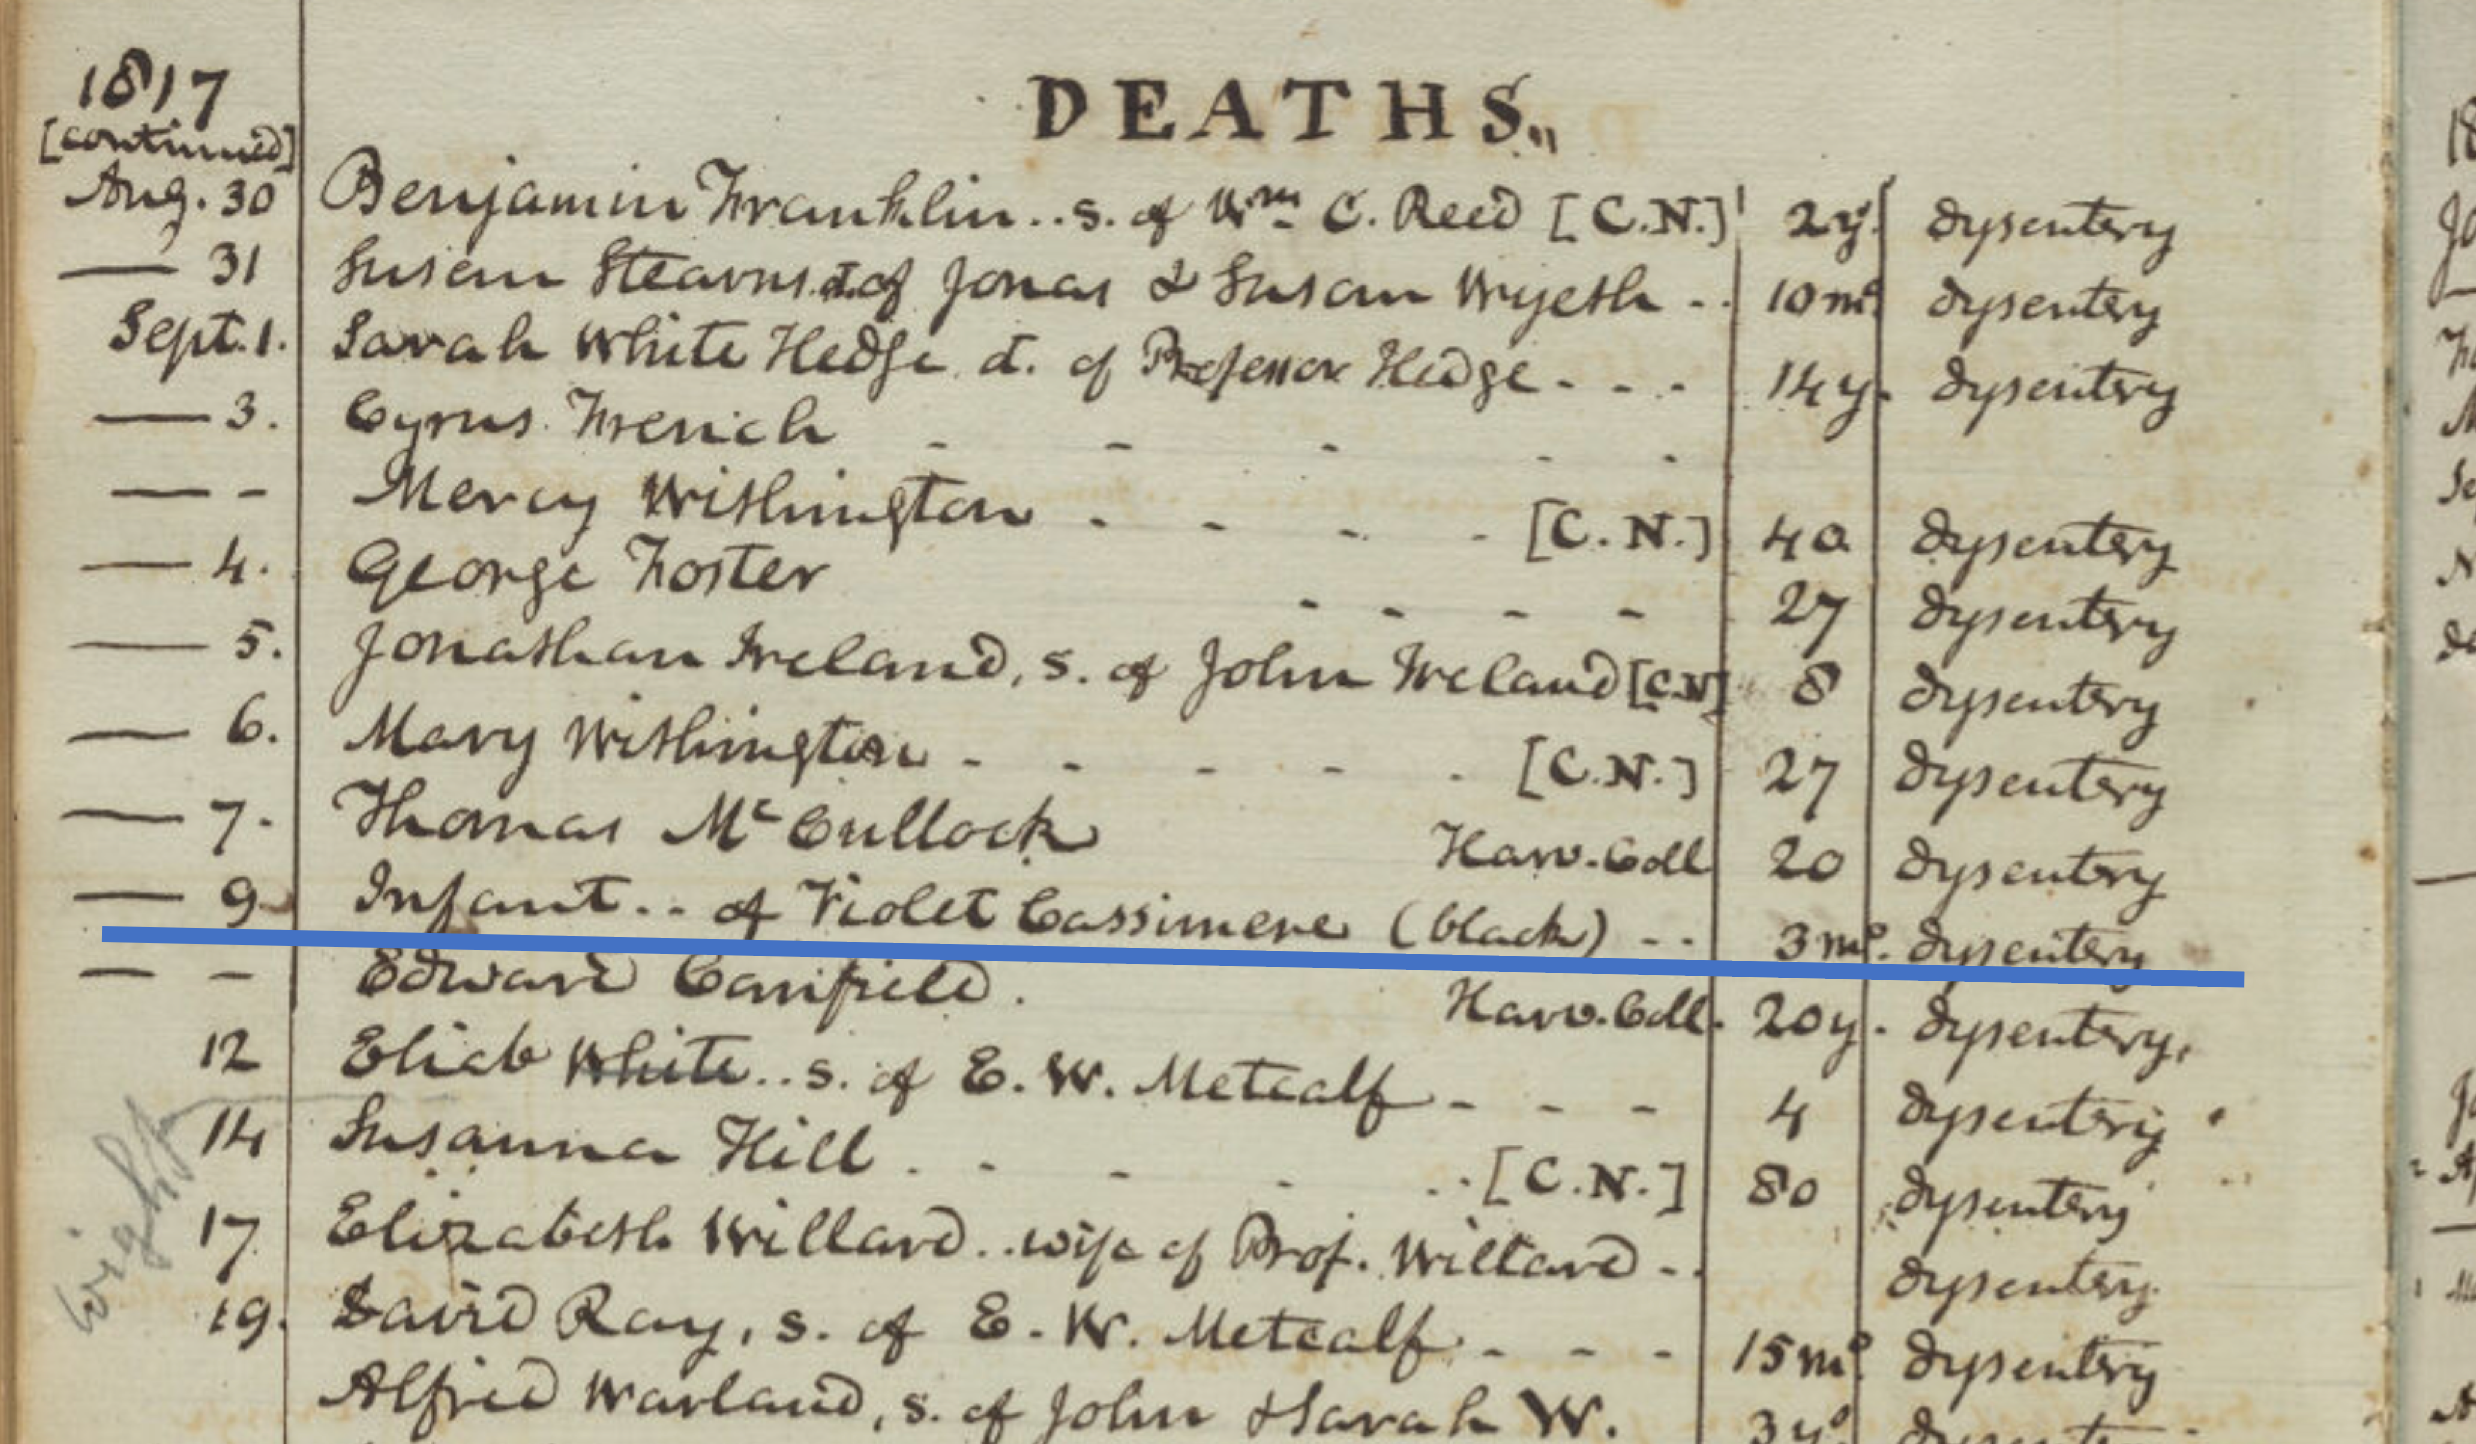 1817
DEATHS.
[continued]
Aug. 30 Benjamin Franklin.. s. of Wm C. Reed [C.N.] 2y. dysentery
— 31 Susan Stearns d. of Jonas & Susan Wyeth .. 10 mo. dysentery
Sept. 1. Sarah White Hedge d. of Professor Hedge - - - 14 y. dysentery
— 3. Cyrus French - - - - -
— - Mercy Withington - - - - [C.N.] 40 dysentery
— 4. George Foster - - - - 27 dysentery
— 5. Jonathan Ireland, s. of John Ireland [C.N] 8 dysentery
— 6. Mary Withington - - - - - [C.N.] 27 dysentery
— 7. Thomas Mc Cullock Harv. Coll 20 dysentery
— 9 Infant.. of Violet Cassimere (black) .. 3 mo. dysentery
— - Edward Canfield. Harv. Coll. 20 y. dysentery.
12 Eliab White.. s. of E. W. Metcalf - - - 4 dysentery
14 Susanna Hill . - - - .. [C.N.] 80 dysentery
17 Elizabeth Willard.. wife of Prof. Willard .. dysentery
19. David Ray, s. of E. W. Metcalf - - - 15 mo. dysentery
Alfred Warland, s. of John & Sarah W. 3 y.